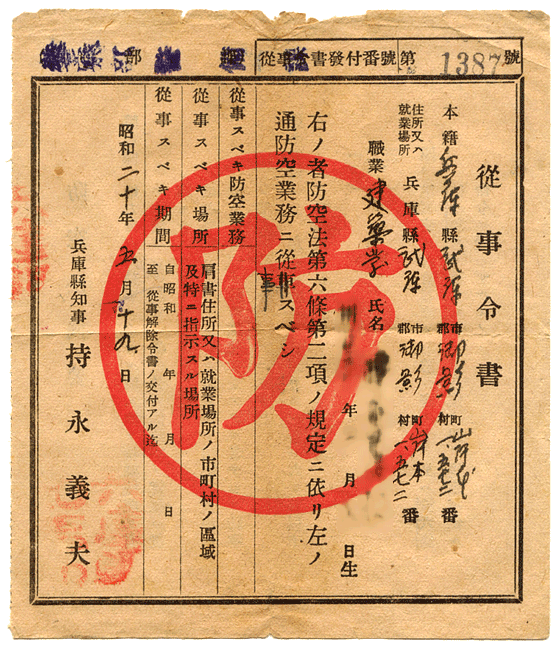 從事令書發付番號 第 1387 號
從事令書
本籍 兵庫縣武庫 市郡 御影 町村 岸本 一、五七二番
住所又ハ就業場所 兵庫縣武庫 市郡 御影 町村 岸本 一、五七二番
職業 建築学 氏名
年 月 日生
右ノ者防空法第六條第二項ノ規定ニ依リ左ノ
通防空業務ニ從事スベシ
從事スベキ防空業務
從事スベキ場所 肩書住所又ハ就業場所ノ市町村ノ區域及特ニ指示スル場所
從事スベキ期間 自昭和 年 月 日
至 從事解除令書ノ交付アル迄
昭和二十年五月十九日
兵庫縣知事 持永義夫
防